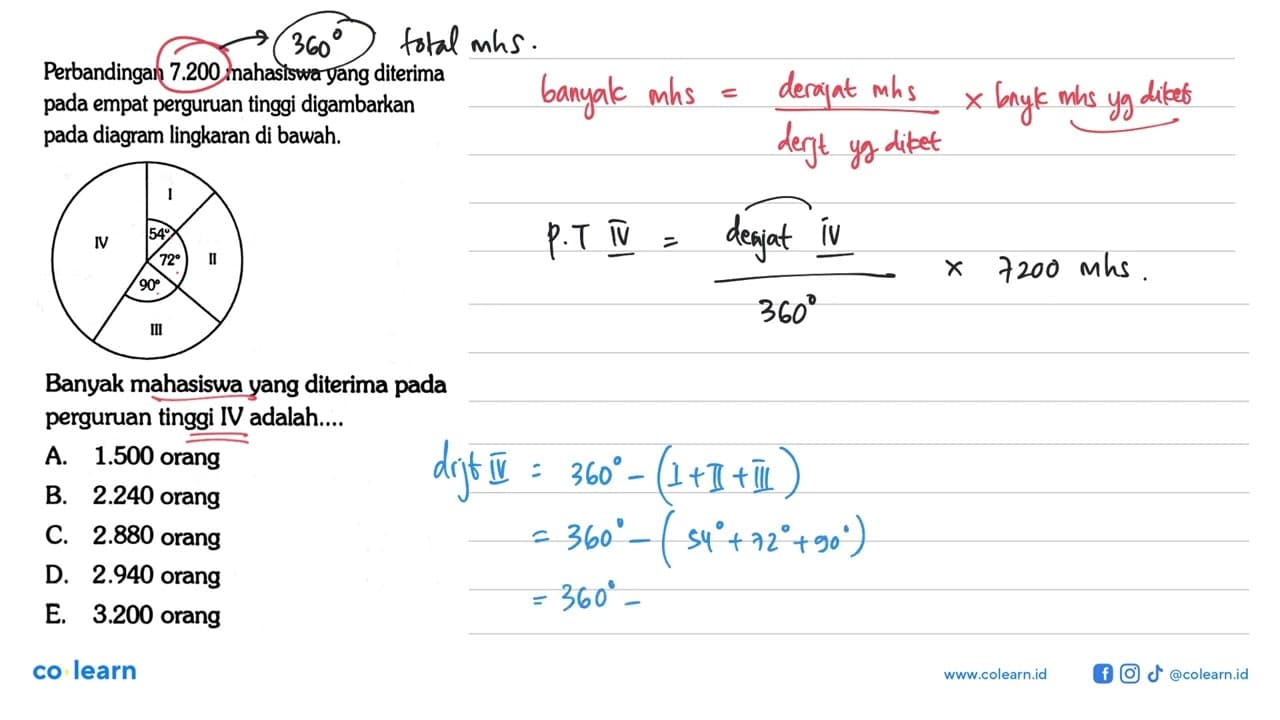 360° total mhs.
Perbandingan 7.200 mahasiswa yang diterima
pada empat perguruan tinggi digambarkan
pada diagram lingkaran di bawah.
I
54°
IV
72° II
90°
III
Banyak mahasiswa yang diterima pada
perguruan tinggi IV adalah....
A. 1.500 orang
B. 2.240 orang
C. 2.880 orang
D. 2.940 orang
E. 3.200 orang
banyak mhs = derajat mhs / derjt yg diket x bnyk mhs yg diket
P.T IV = derajat IV / 360° x 7200 mhs.
drjt IV = 360° - (I + II + III)
= 360° - (54° + 72° + 90°)
= 360° -
co learn
www.colearn.id
@colearn.id